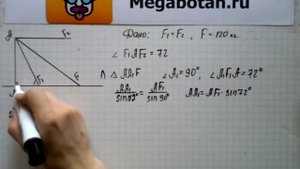 Megabotan.ru
Дано: F₁=F₂, F=120 н
∠F₁AF₂=72
Δ AA₁F ∠A₁=90°, ∠A₁F₁A=72°
AA₁/sin72° = AF₁/sin90° AA₁=AF₁·sin72°
A F₂
F₁ F